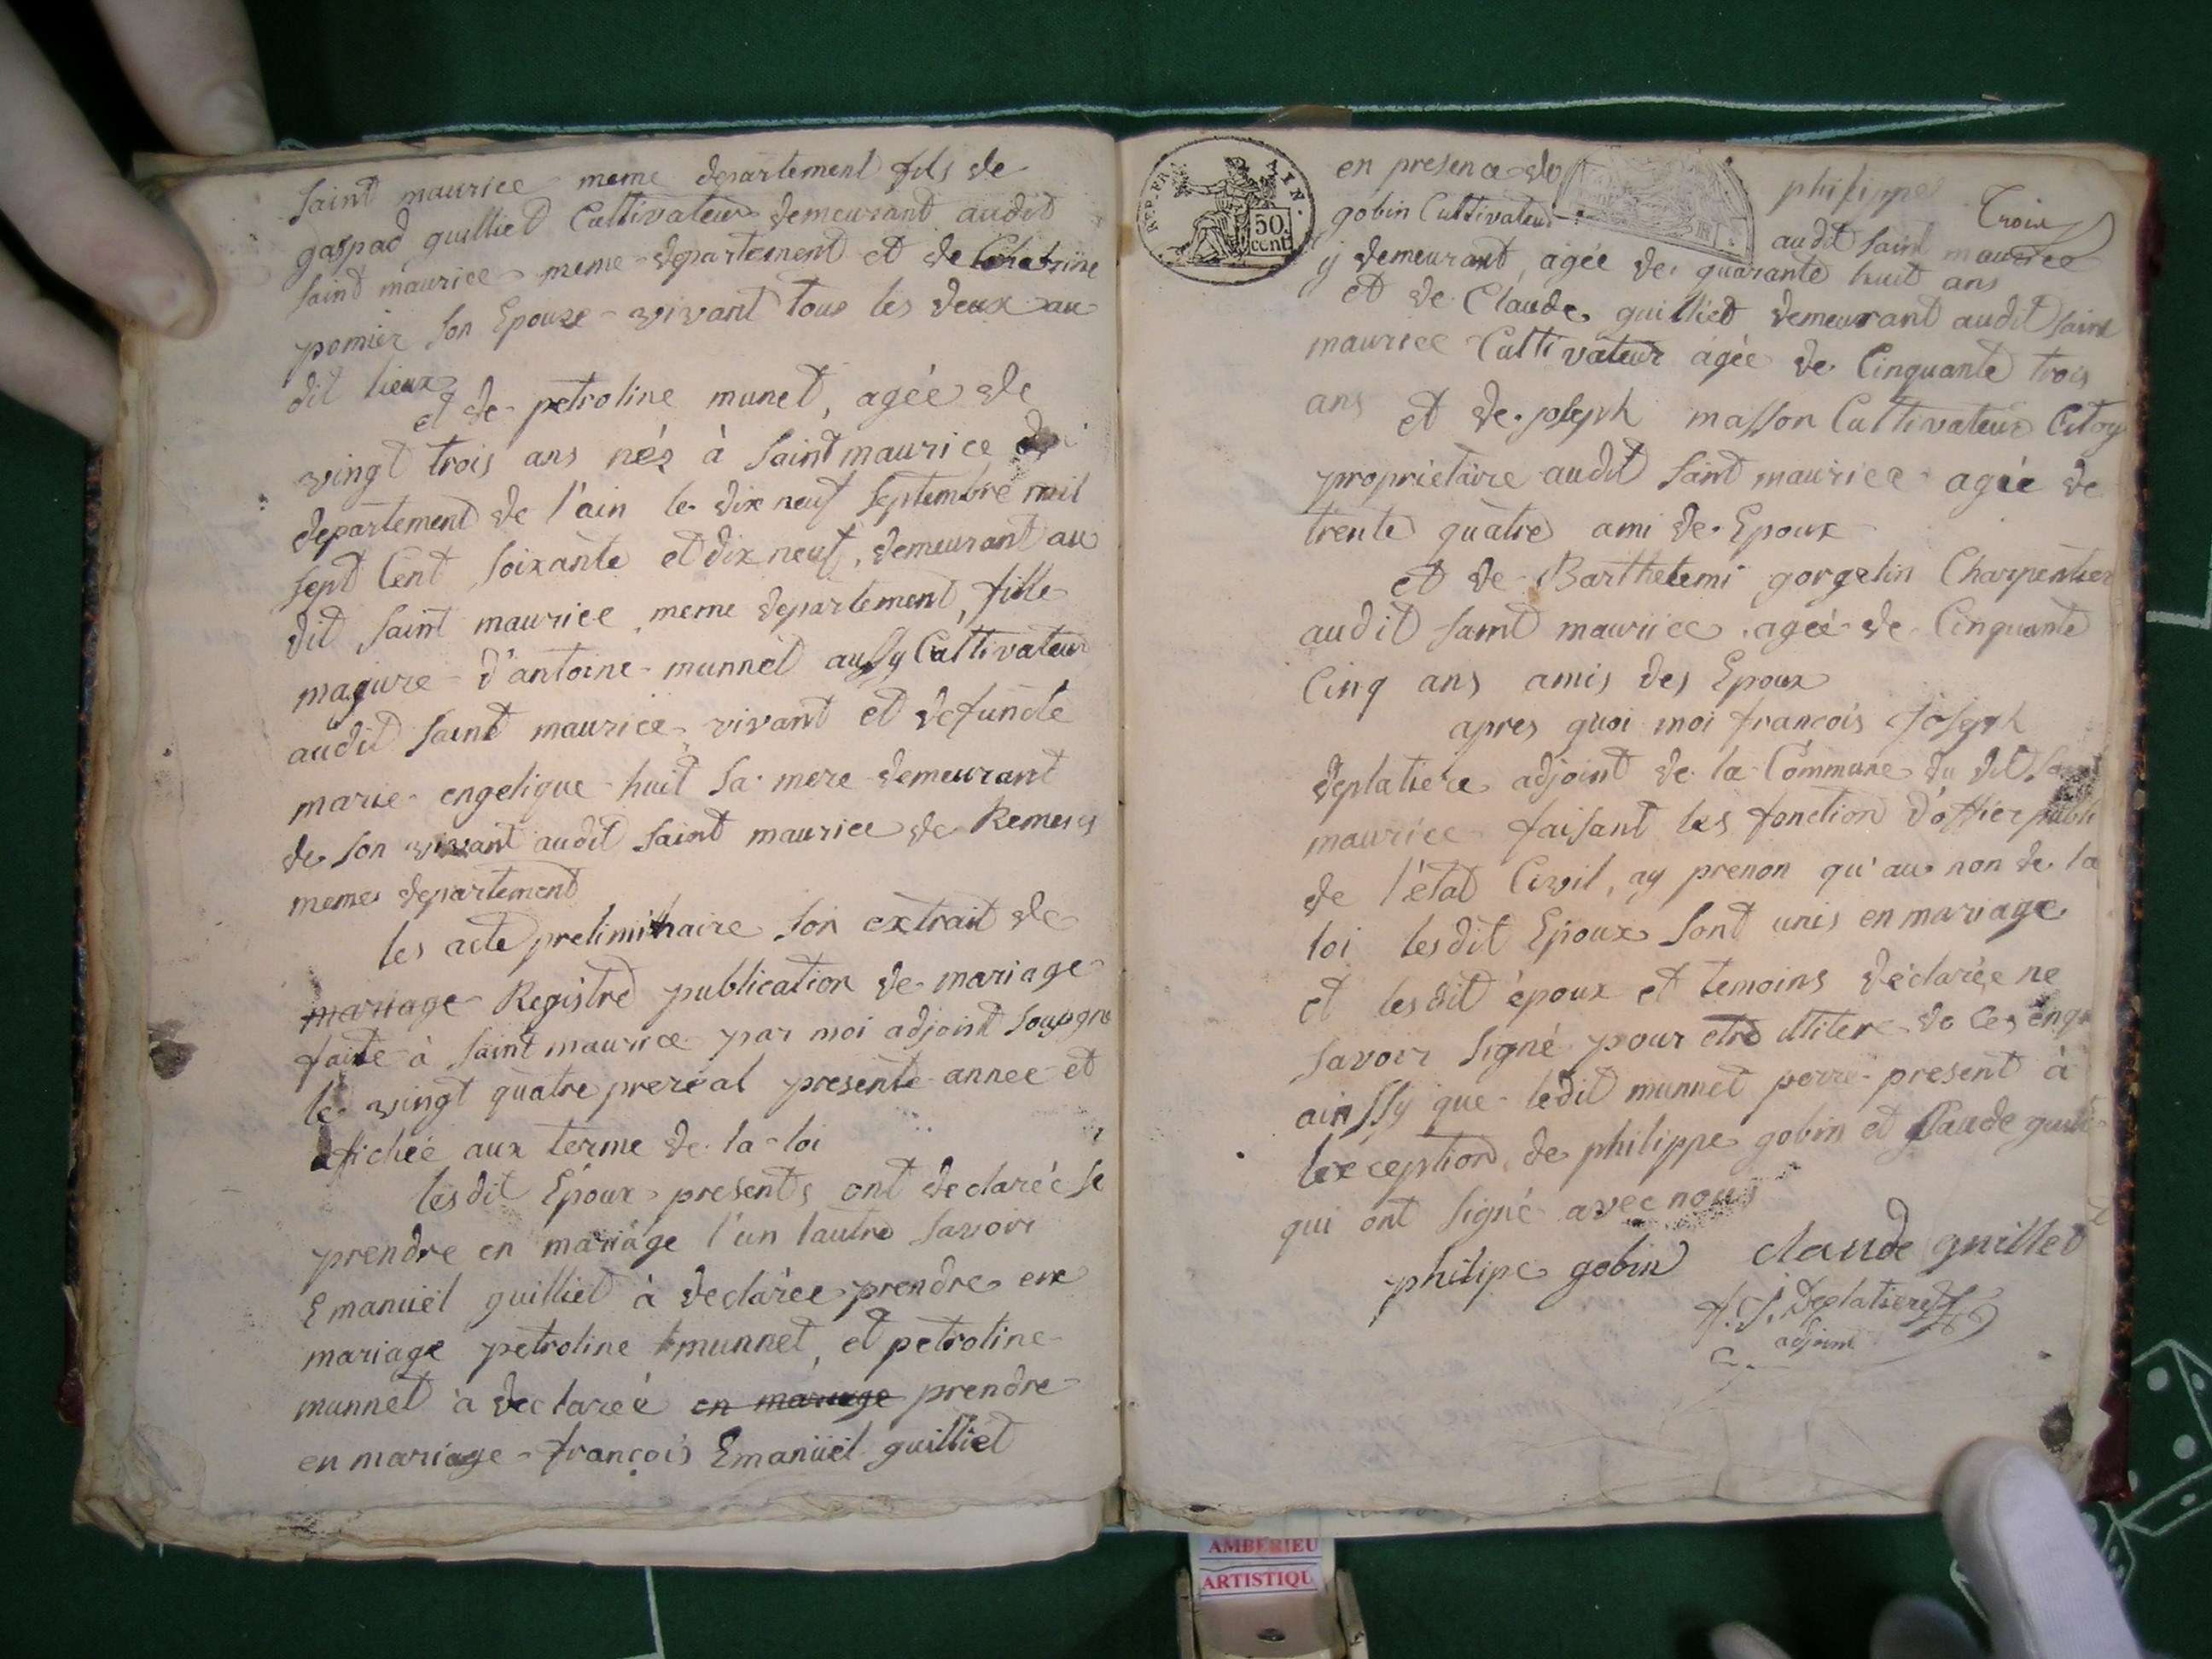 Saint maurice meme departement fils de
gaspad guilliet Cultivateur demeurant audit
saint maurice meme departement et de
pomier son Epouse vivant tous les deux au
dit lieux
et de petroline munet, agée de
vingt trois ans nés à Saint maurice
departement de l'ain le dix neuf septembre mil
sept Cent soixante et dix neuf, demeurant au
dit saint maurice, meme departement, fille
magure d'antoine munnet aussy Cultivateur
audit saint maurice vivant et defuncte
marie engelique huit sa mere demeurant
de son vivant audit saint maurice de Remens
memes departement
les acte preliminaire son extrait de
mariage Registre publication de mariage
faite à saint maurice par moi adjoint
le vingt quatre prereal presente annee et
afichée aux terme de la loi
lesdit Epoux presents ont declarée se
prendre en mariage l'un lautre savoir
Emanuël guilliet à declarée prendre en
mariage petroline munnet, et petroline
munnet à declareé en mariage prendre
en mariage françois Emanüel guilliet
REP. FRA. AIN.
50 cent.
Troix
en presence de philippe
gobin Cultivateur audit saint maurice
y demeurant, agée de quarante huit ans
et de Claude guilliet demeurant audit saint
maurice Cultivateur agée de Cinquante trois
ans et de joseph masson Cultivateur Citoy
proprietaire audit saint maurice agée de
trente quatre ami de Epoux
et de Barthelemi gorgelin Charpentier
audit saint maurice agée de Cinquante
Cinq ans amis des Epoux
apres quoi moi francois Joseph
deplatiere adjoint de la Commune du dit
maurice faisant les fonction d'offier publi
de l'état Civil, ay prenon qu'au non de la
loi lesdit Epoux sont unis en mariage
et lesdit époux et temoins déclarée ne
savoir signé pour etre illitere de ces enqu
ainssy que ledit munnet perre present à
lexception de philippe gobin et Claude
qui ont signé avec nous
philipe gobin claude guillet
f. J. Deplatiere
adjoint
AMBERIEU
ARTISTIQU